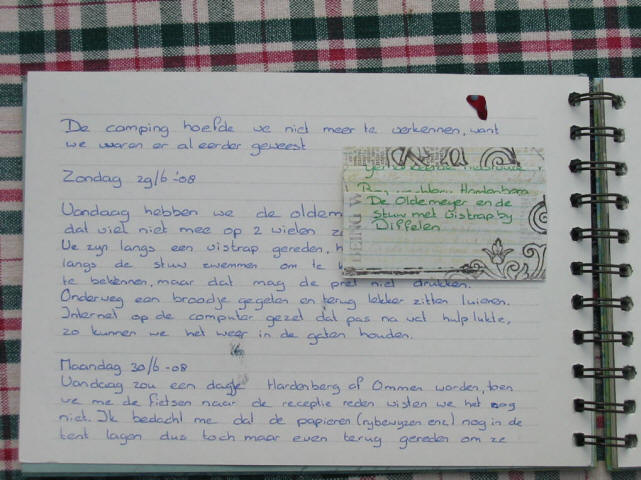 De camping hoefde we niet meer te verkennen, want
we waren er al eerder geweest
Zondag 29/6-'08
Vandaag hebben we de oldem
dat viel niet mee op 2 wielen
We zijn langs een vistrap gereden,
langs de stuw zwemmen om te
te bekennen, maar dat mag de pret niet drukken.
Onderweg een broodje gegeten en terug lekker zitten luieren.
Internet op de computer gezet dat pas na wat hulp lukte,
zo kunnen we het weer in de gaten houden.
Maandag 30/6-08
Vandaag zou een dagje Hardenberg of Ommen worden, toen
we me de fietsen naar de receptie reden wisten we het nog
niet. Ik bedacht me dat de papieren (rijbewyzen enz) nog in de
tent lagen dus toch maar even terug gereden om ze
Hardenberg
De Oldemeyer en de
stuw met vistrap by
Diffelen
BEING W